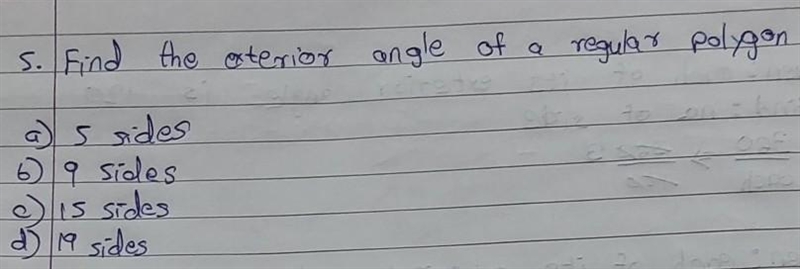 5. Find the exterior angle of a regular polygon
a) 5 sides
b) 9 sides
c) 15 sides
d) 19 sides